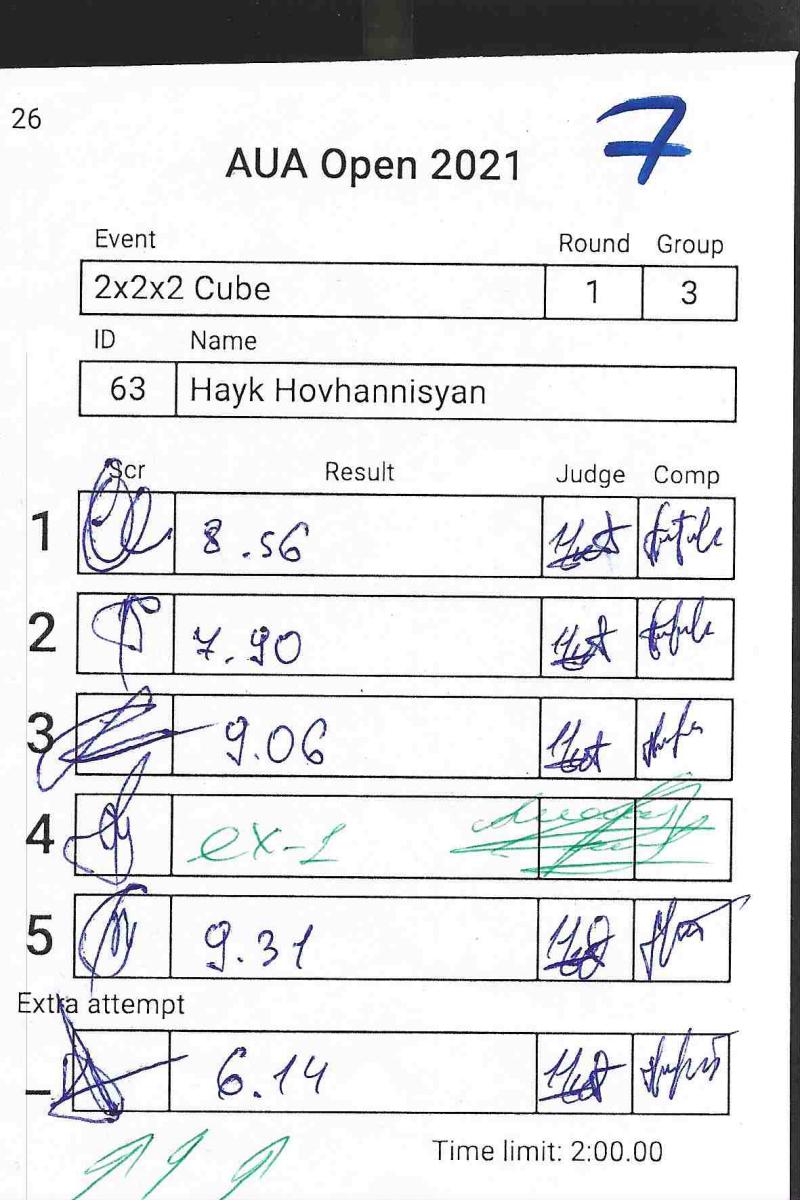 26
7
AUA Open 2021
Event Round Group
2x2x2 Cube 1 3
ID Name
63 Hayk Hovhannisyan
Scr Result Judge Comp
1 8.56
2 7.90
3 9.06
4 ex-1
5 9.31
Extra attempt
_ 6.14
Time limit: 2:00.00